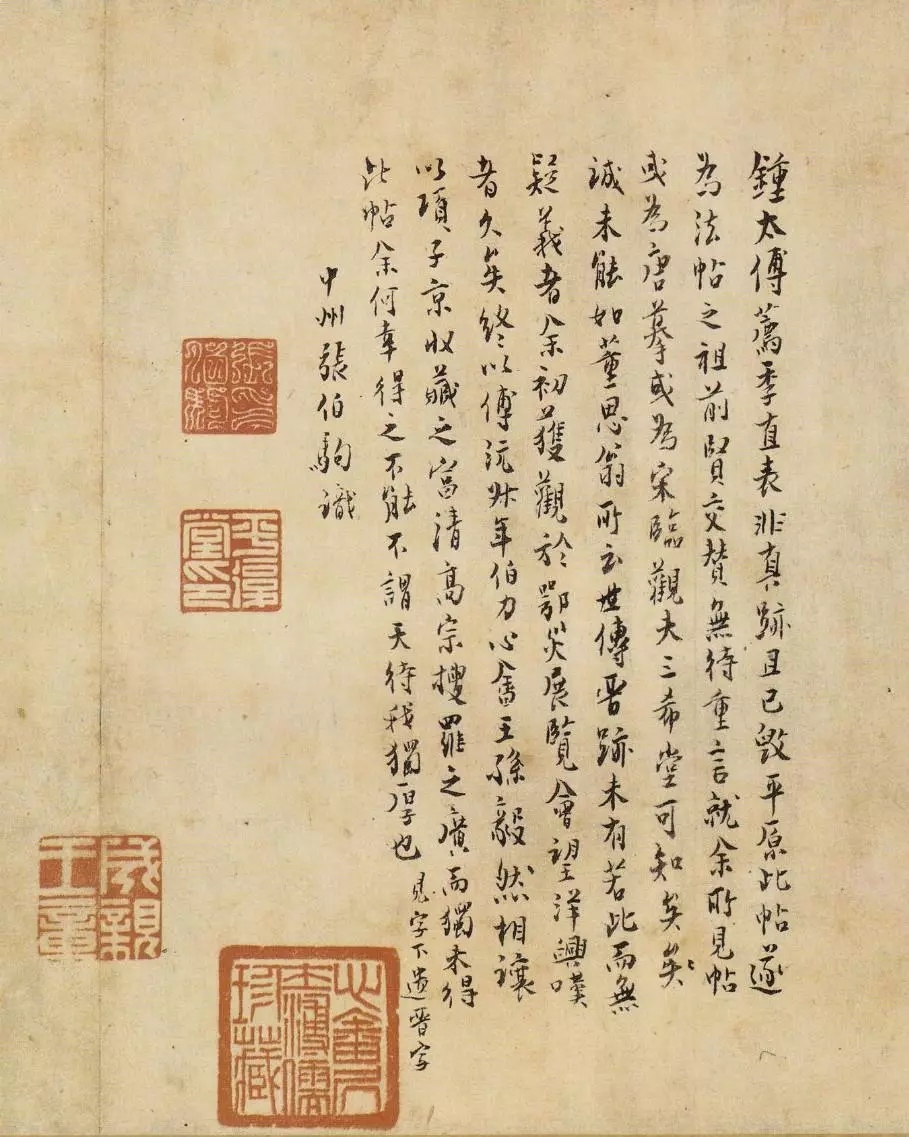 鍾太傅薦季直表非真跡且已毀平原此帖遂
為法帖之祖前賢交贊無待重言就余所見帖
或為唐摹或為宋臨觀夫三希堂可知矣矣
誠未能如董思翁所云世傳晋跡未有若此而無
疑義者余初獲觀於鄂災展覽會望洋興嘆
者久矣終以傅沅叔年伯力心畬王孫毅然相讓
以項子京收藏之富清高宗搜羅之廣而獨未得
此帖余何幸得之不能不謂天待我獨厚也
見字下遺晋字
中州張伯駒識
張印伯駒
平復堂印
成親王章